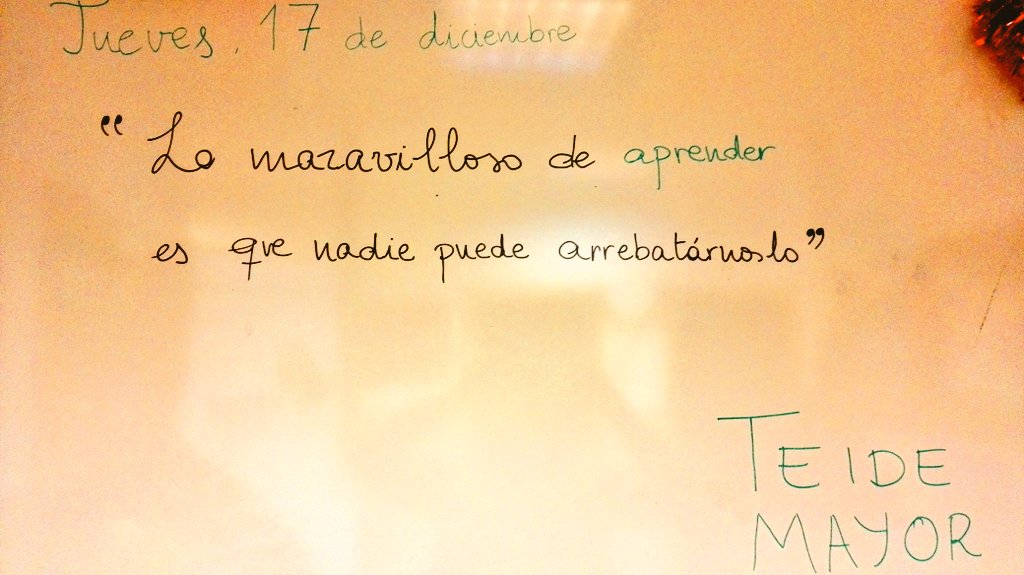 Jueves. 17 de diciembre
“Lo maravilloso de aprender
es que nadie puede arrebatárnoslo”
TEIDE
MAYOR